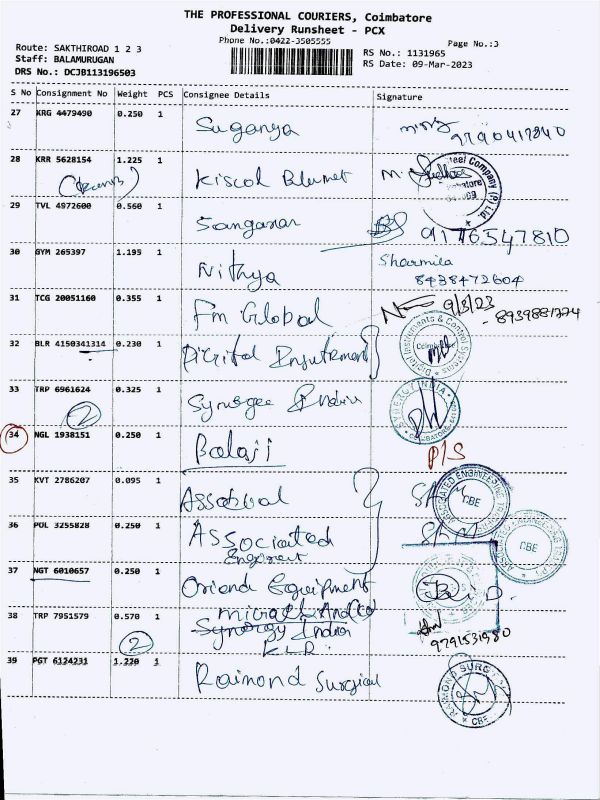 THE PROFESSIONAL COURIERS, Coimbatore
Delivery Runsheet - PCX
Phone No.:0422-3505555
Page No.:3
Route: SAKTHIROAD 1 2 3
Staff: BALAMURUGAN
DRS No.: DCJB113196503
RS No.: 1131965
RS Date: 09-Mar-2023
S No Consignment No Weight PCS Consignee Details Signature
27 KRG 4479490 0.250 1 Suganya
28 KRR 5628154 1.225 1 Kiscol
29 TVL 4972600 0.560 1 Sanganar 9176547810
30 GYM 265397 1.195 1 Nithya Sharmila
8438472604
31 TCG 20051160 0.355 1 Fm Global 9/3/23
32 BLR 4150341314 0.230 1 Digital
Digital Instruments & Control Systems
33 TRP 6961624 0.325 1 Synergee India
2
SYNERGY INDIA
34 NGL 1938151 0.250 1 Balaji P/S
35 KVT 2786207 0.095 1
ASSOCIATED ENGINEERING
CBE
36 POL 3255828 0.250 1 Associated
CBE
37 NGT 6010657 0.250 1 Oriend Equipment
38 TRP 7951579 0.570 1 Synorgy India
2
K.L.R.
9791531980
39 PGT 6124231 1.220 1 Raimond Surgical
RAIMOND SURGICAL
CBE